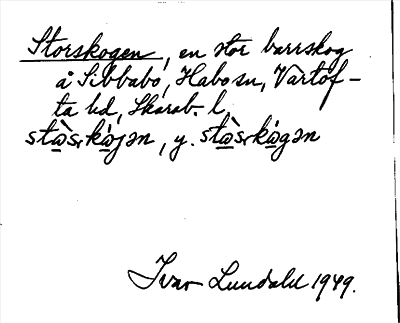 Storskogen, en stor barrskog
å Sibbabo, Habo sn, Vartof-
ta hd, Skarab. l.
stὼsˌkώjən, y. stὼsˌkώgən
Ivar Lundahl 1949.